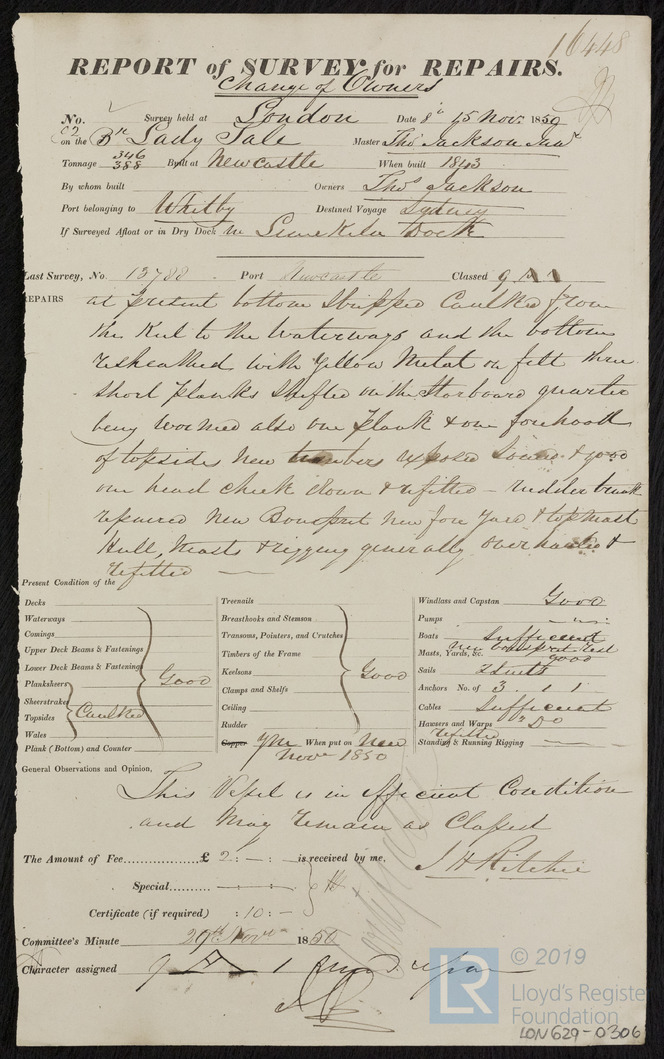 16448
REPORT of SURVEY for REPAIRS.
Change of Owners
No. Survey held at London Date 8th 15 Nov. 1850
on the Bk Lady Sale Master Thos. Jackson
Tonnage 346 388 Built at Newcastle When built 1843
By whom built Owners Thos. Jackson
Port belonging to Whitby Destined Voyage Sydney
If Surveyed Afloat or in Dry Dock in Limekiln Dock
Last Survey, No. 13788 Port Newcastle Classed 9 A 1
REPAIRS at present bottom Stripped Caulked from
the Keel to the Waterways and the bottom
resheathed with Yellow Metal on felt three
short planks shifted on the Starboard quarter
being wormed also one plank & one forehood
of topsides new timbers exposed sound & good
one head cheek down & refitted - rudder trunk
repaired New Bowsprit new fore yard & topmast
Hull, Masts & rigging generally overhauled &
refitted
Present Condition of the
Decks
Waterways
Comings
Upper Deck Beams & Fastenings
Lower Deck Beams & Fastenings
Plansheers
Good
Sheerstrakes
Topsides
Wales
Caulked
Plank (Bottom) and Counter
Treenails
Breasthooks and Stemson
Transoms, Pointers, and Crutches
Timbers of the Frame
Keelsons
Good
Clamps and Shelfs
Ceiling
Rudder
Copper YM When put on New
Novr 1850
Windlass and Capstan Good
Pumps "
Boats Sufficient
Masts, Yards, &c. New bowsprit rest good
Sails 2 Suits
Anchors No. of 3 . 1 1
Cables Sufficient
Hawsers and Warps " Do
Standing & Running Rigging Refitted
General Observations and Opinion,
This Vessel is in efficient Condition
and may remain as Classed
The Amount of Fee £ 2 : - : - is received by me,
J H Ritchie
Special
Certificate (if required) : 10 : -
Committee's Minute 29th Novr 1850
Character assigned 9 A 1
© 2019
LR
Lloyd's Register
Foundation
LON629-0306